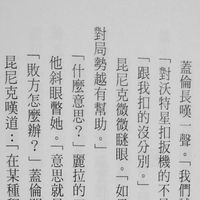 蓋倫長嘆一聲。「我們
「對沃特星扣扳機的不是
「跟我扣的沒分別。」
昆尼克微微瞇眼。「如
對局勢越有幫助。」
「什麼意思?」麗拉的
他斜眼瞥她。「意思就
「敗方怎麼辦?」蓋倫
昆尼克嘆道:「在某種